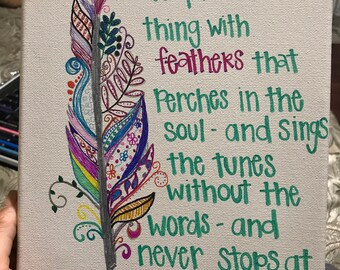 thing with
feathers that
Perches in the
soul - and sings
the tunes
without the
words - and
never stops at